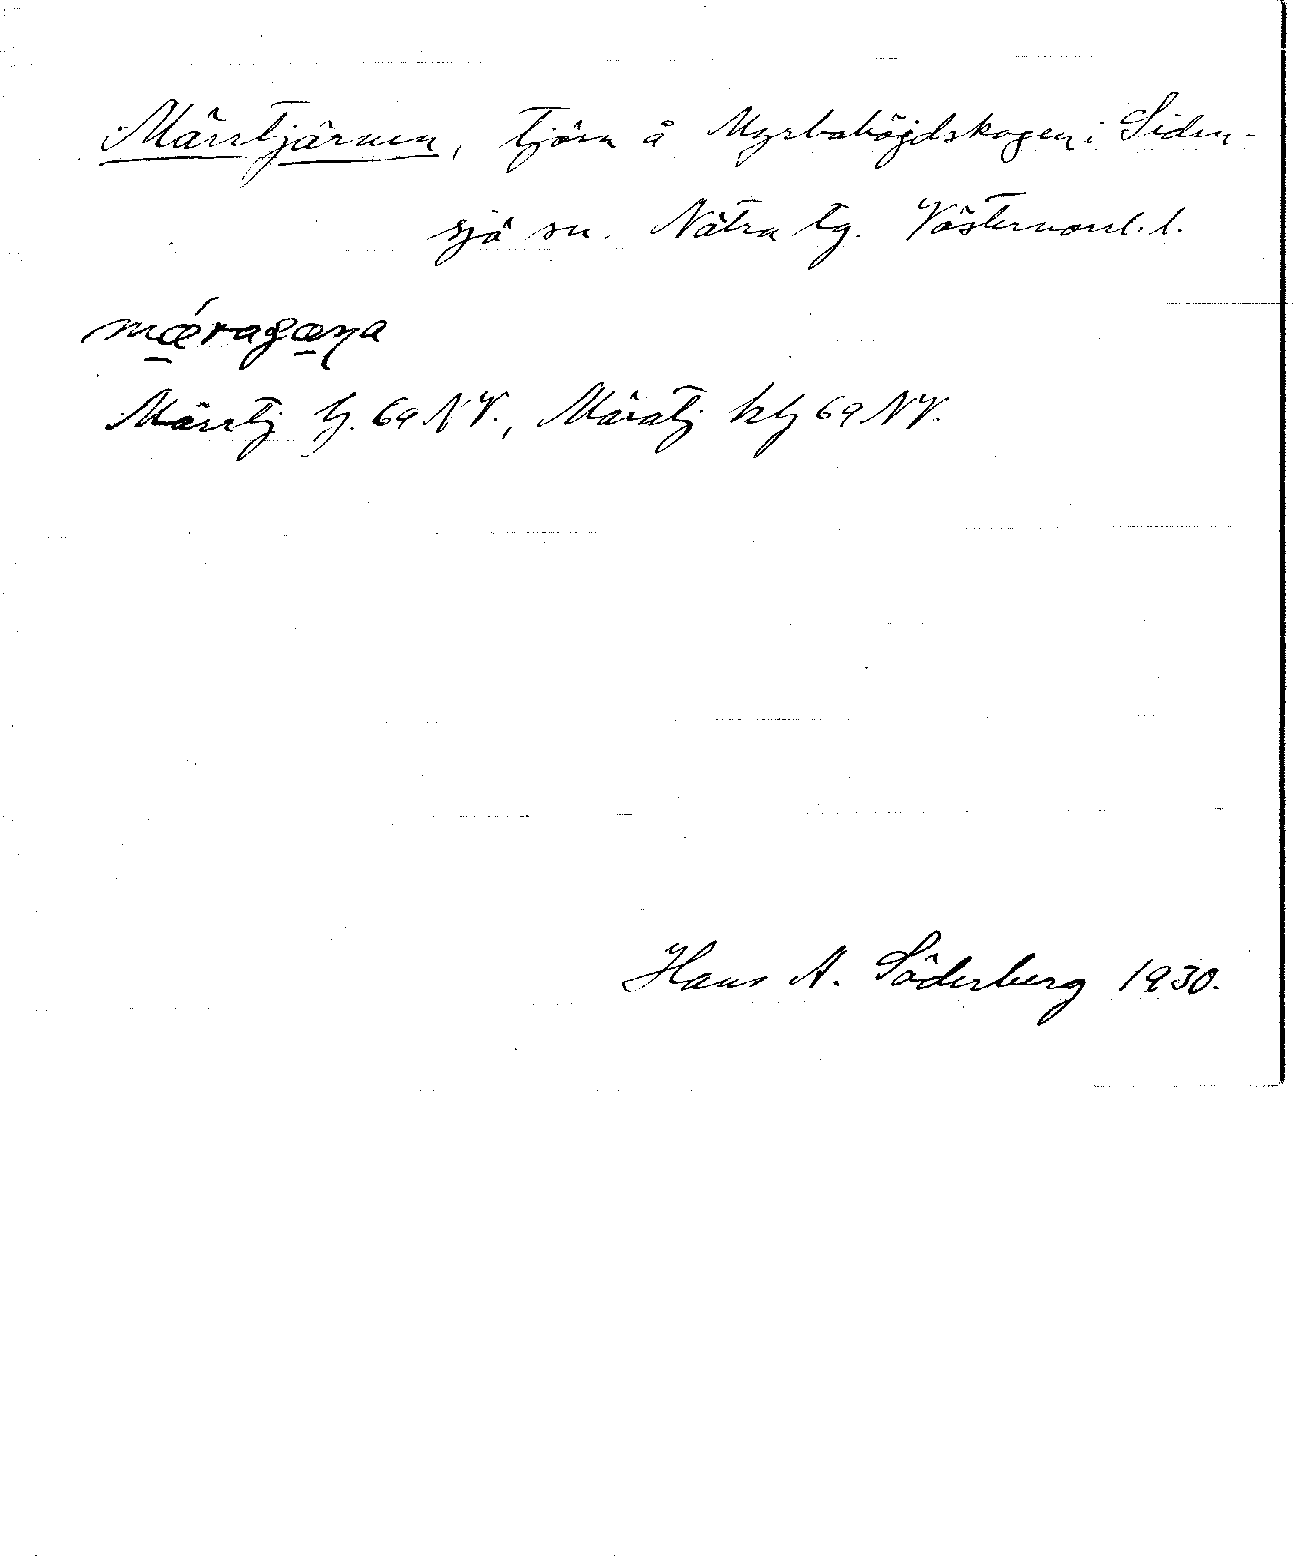 Märrtjärnen, tjärn å Myrbahöjdskogen i Siden-
sjö sn. Nätra tg. Västernorrl. l.
mǽragæṇa
Märrtj tj. 69 NV., Märatj 69 NV.
Hans A. Söderberg 1930.